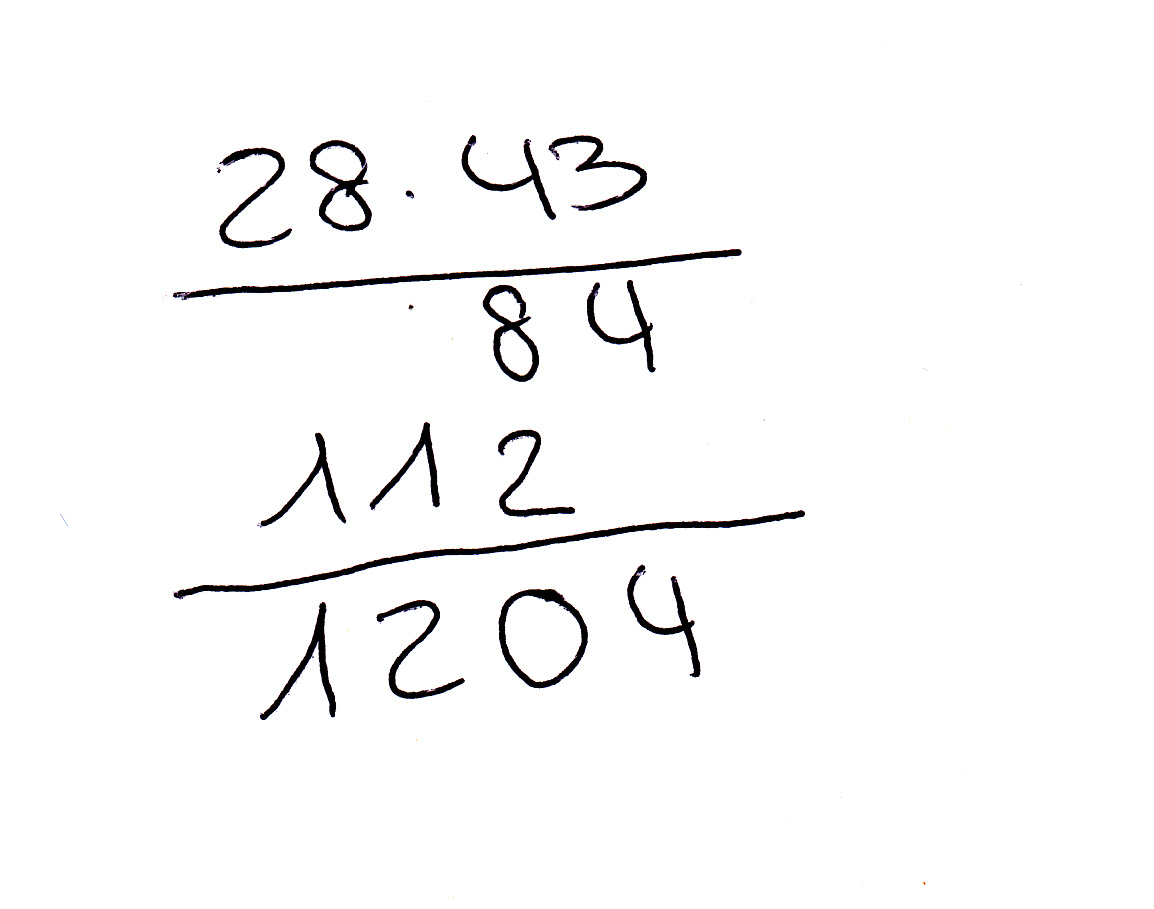 28 · 43
84
112
1204